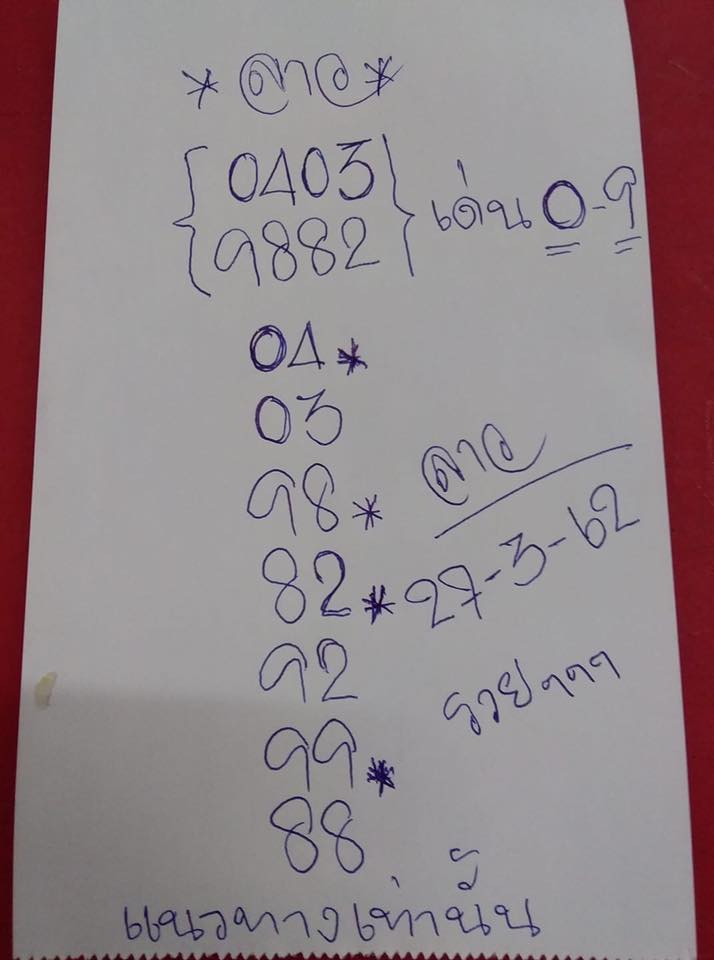 * ลาว *
0403
9882
เด่น 0-9
04*
03
98*
82*
92
99*
88
ลาว
27-3-62
รวยๆๆๆ
แนวทางเท่านั้น